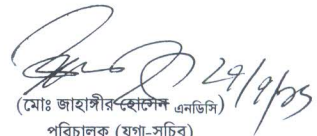 ২৭/৭/২৫
(মোঃ জাহাঙ্গীর হোসেন এনডিসি)
পরিচালক (যুগ্ম-সচিব)